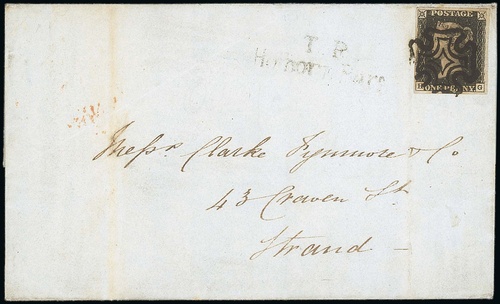 POSTAGE
T.P.
ONE PENNY
Messrs Clarke Fynmore & Co
43 Craven St
Strand